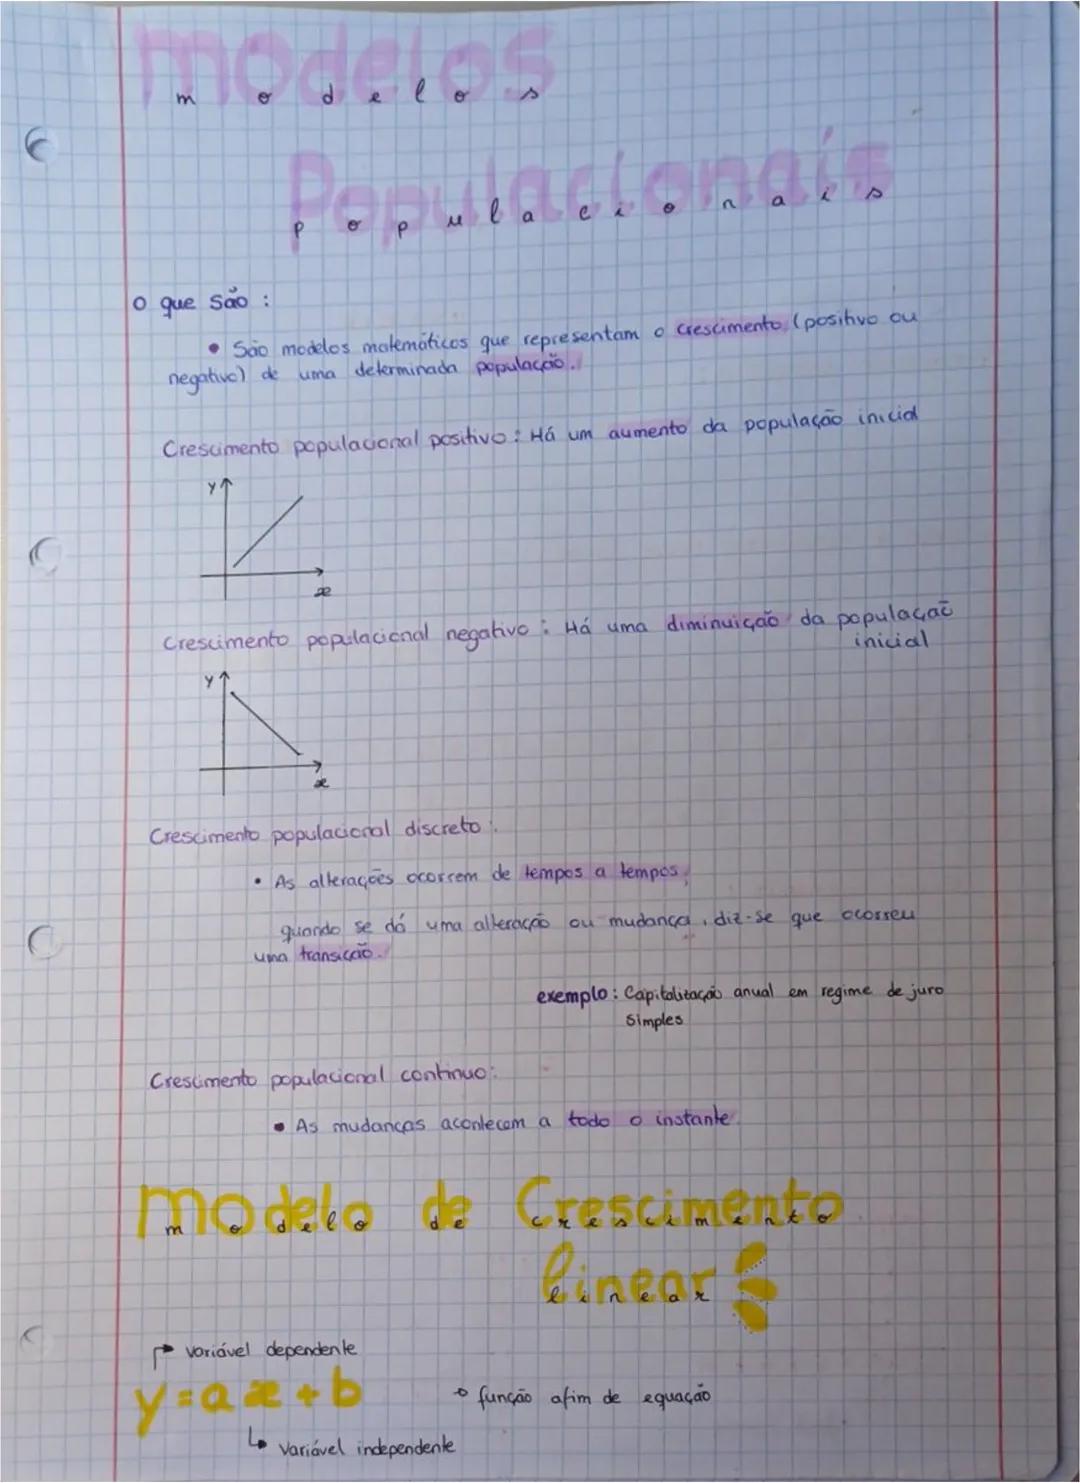 modelos
Populacionais
o que são :
• São modelos matemáticos que representam o crescimento (positivo ou
negativo) de uma determinada população.
Crescimento populacional positivo : Há um aumento da população inicial
y
x
Crescimento populacional negativo : Há uma diminuição da população
inicial
y
x
Crescimento populacional discreto :
• As alterações ocorrem de tempos a tempos.
quando se dá uma alteração ou mudança, diz-se que ocorreu
uma transição.
exemplo : Capitalização anual em regime de juro
simples
Crescimento populacional contínuo :
• As mudanças acontecem a todo o instante.
modelo de Crescimento
linear
variável dependente
y = ax + b
função afim de equação
variável independente